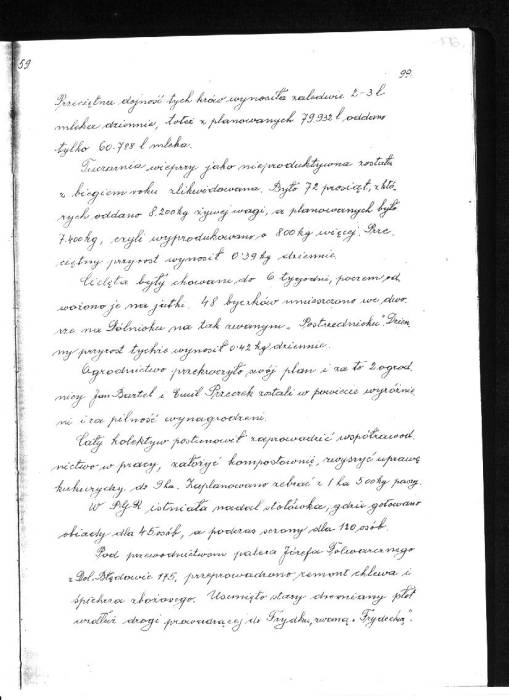 59
99.
Przeciętna dojność tych krów wynosiła zaledwie 2-3 l.
mleka dziennie, toteż z planowanych 79.932 l, oddano
tylko 60.788 l mleka.
Tuczarnia wieprzy jako nieproduktywna została
z biegiem roku zlikwidowana. Było 72 prosiąt, z któ-
rych oddano 8.200 kg żywej wagi, a planowanych było
7.400 kg, czyli wyprodukowano o 800 kg więcej. Prze-
ciętny przyrost wynosił 0.39 kg dziennie.
Cielęta były chowane do 6 tygodni, poczem od
wożono je na jatki. 48 byczków umieszczono we dwo-
rze na Dólnioku na tak zwanym „Postrzednioku". Dzien
ny przyrost tychże wynosił 0.42 kg dziennie.
Ogrodnictwo przekroczyło swój plan i za to 2 ogrod
nicy Jan Bartel i Emil Pszczek zostali w powiecie wyróżnie
ni i za pilność wynagrodzeni.
Cały kolektyw postanowił zaprowadzić współzawod
nictwo w pracy, założyć kompostownię, zwyszyć uprawę
kukurzycy do 9 ha. Zaplanowano zebrać z 1 ha 500 kg paszy.
W PGR istniała nadal stołówka, gdzie gotowano
obiady dla 45 osób, a podczas sezony dla 120 osób.
Pod przewodnictwem patera Józefa Folwarcznego
z Dol. Błędowic 175, przeprowadzono remont chlewa i
śpichera zbożowego. Usunięto stary drewniany płot
wzdłuż drogi prowadzącej do Frydku, zwaną „Frydecką".